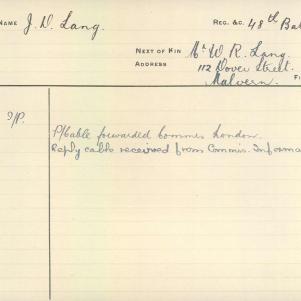 NAME J. D. Lang. REG. &C. 48th Bat
NEXT OF KIN Mr W. R. Lang.
ADDRESS 112 Dover Street.
Malvern.
P/Cable forwarded Commis London.
Reply cable received from Commis. Informa